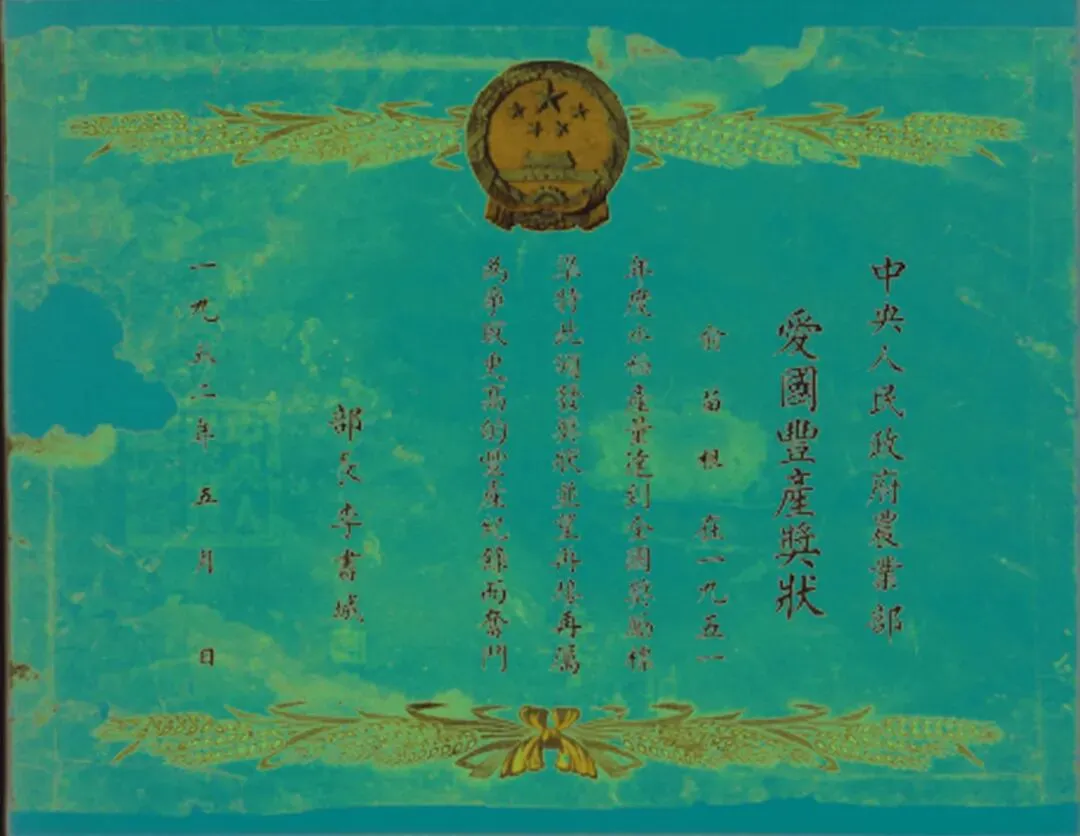 中央人民政府農業部
愛國豐產獎狀
俞苗根 在一九五一
年度水稻產量達到全國獎勵標
準特此頒發獎狀並望再接再厲
為爭取更高的豐產紀錄而奮鬥
部長李書城
一九五二年五月 日